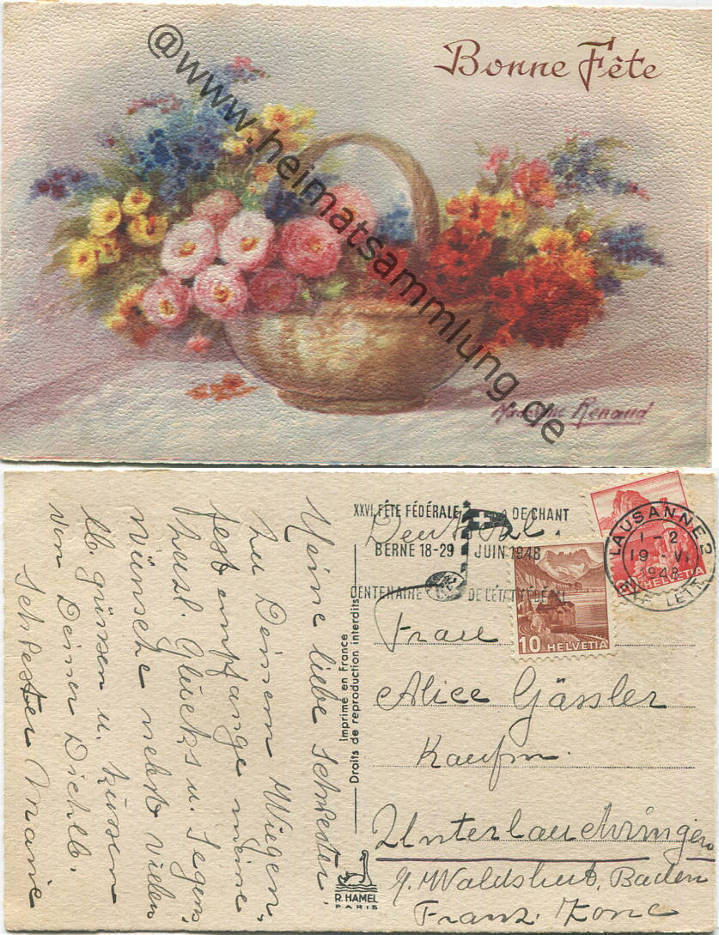 Bonne Fête
@www.heimatsammlung.de
Madeleine Renaud
Meine liebe Schwester.
Zu Deinem Wiegen,
fest empfange meine
herzl. Glücks u. Segens
wünsche nebst vielen
lb. grüssen u. küssen
von Deiner Dichlb.
Schwester Marie
Imprimé en France
Droits de reproduction interdits
R. HAMEL
PARIS
XXVI. FÊTE FÉDÉRALE DE CHANT
BERNE 18-29 JUIN 1948
CENTENAIRE DE L'ÉTAT FÉDÉRAL
LAUSANNE 2
1-2
19.VI.
1948
HELVETIA
10 HELVETIA
Frau
Alice Gässler
Kaufm.
Unterlauchringen
b/Waldshut, Baden
Franz. Zone